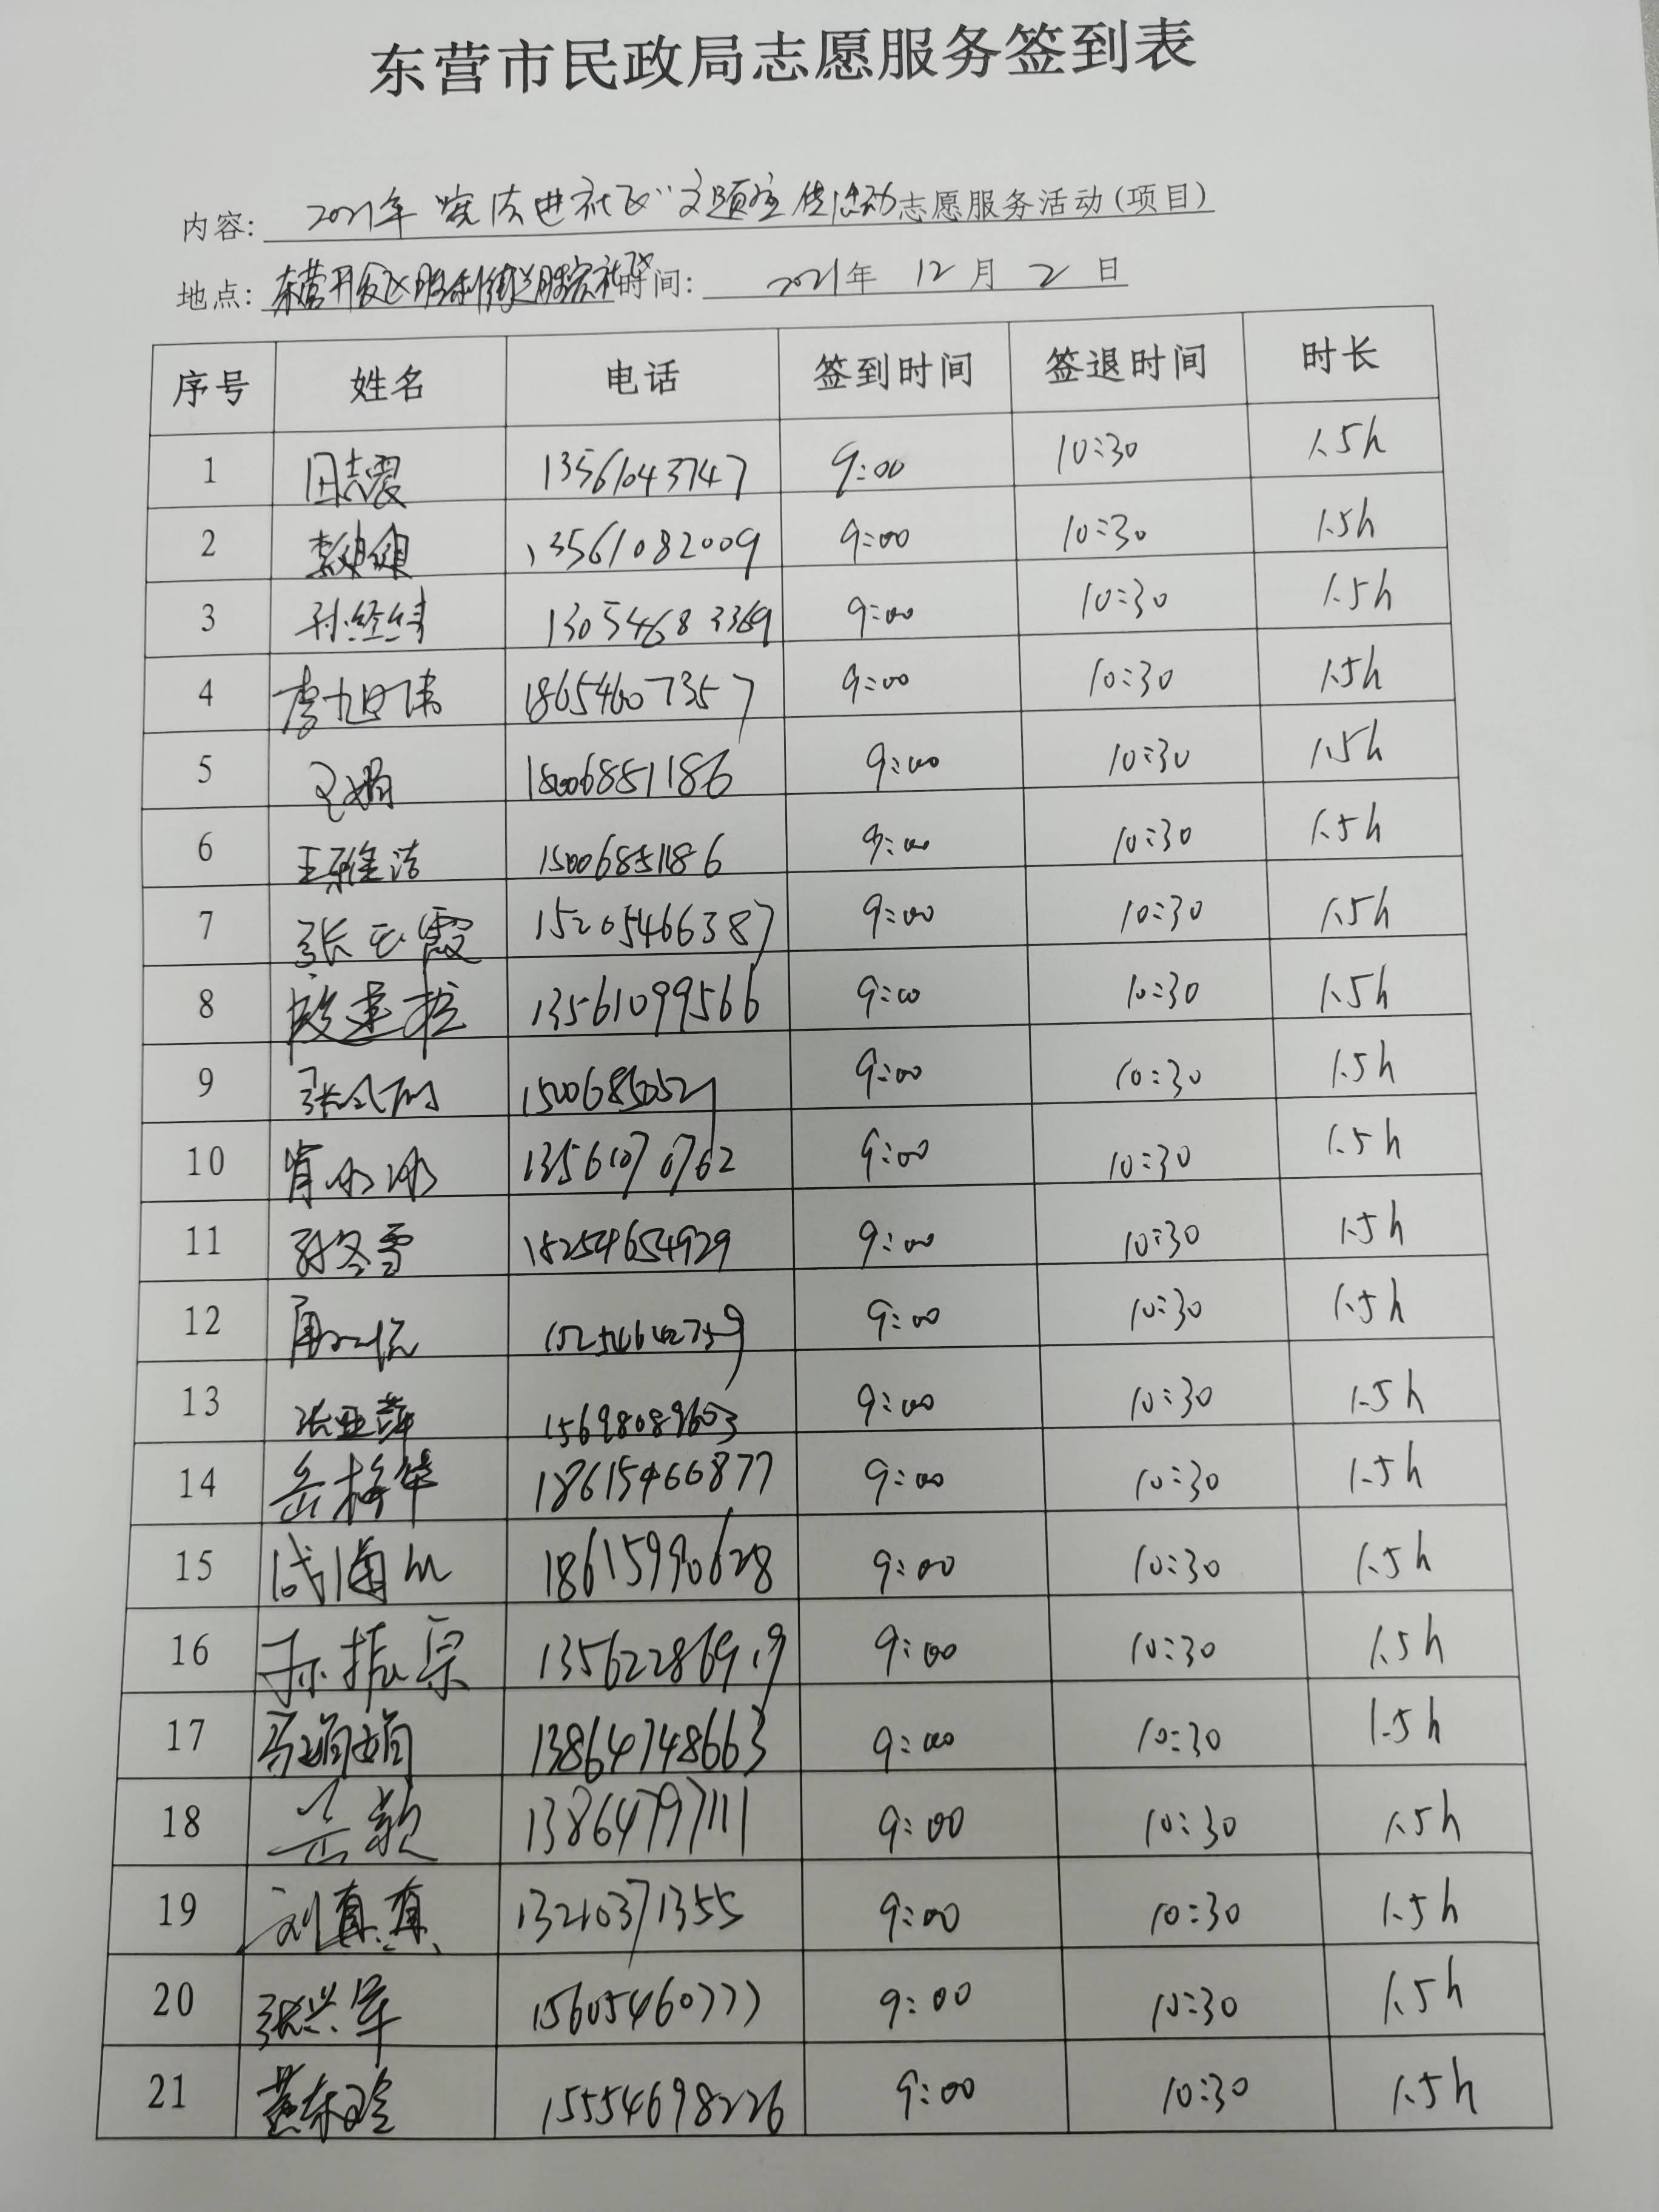 东营市民政局志愿服务签到表
内容: 2021年"宪法进社区"主题宣传活动志愿服务活动(项目)
地点: 东营开发区胜利街道胜宏社区 时间: 2021年 12月 2日
序号 姓名 电话 签到时间 签退时间 时长
1 田志霞 13561043747 9:00 10:30 1.5h
2 13561082009 9:00 10:30 1.5h
3 孙经纬 13054683369 9:00 10:30 1.5h
4 李旭伟 18654607357 9:00 10:30 1.5h
5 18006851186 9:00 10:30 1.5h
6 王雅洁 15006851186 9:00 10:30 1.5h
7 张玉霞 15205466387 9:00 10:30 1.5h
8 段建拉 13561099566 9:00 10:30 1.5h
9 15006850521 9:00 10:30 1.5h
10 肖冰冰 13561070762 9:00 10:30 1.5h
11 孙冬雪 18254654929 9:00 10:30 1.5h
12 15254642759 9:00 10:30 1.5h
13 张亚萍 15698089603 9:00 10:30 1.5h
14 岳梅华 18615466877 9:00 10:30 1.5h
15 18615990628 9:00 10:30 1.5h
16 孙振宗 13562286919 9:00 10:30 1.5h
17 马娟娟 13864748663 9:00 10:30 1.5h
18 岳颖 13864797111 9:00 10:30 1.5h
19 刘真真 13210371355 9:00 10:30 1.5h
20 张兴军 15605460777 9:00 10:30 1.5h
21 燕东玲 15554698226 9:00 10:30 1.5h